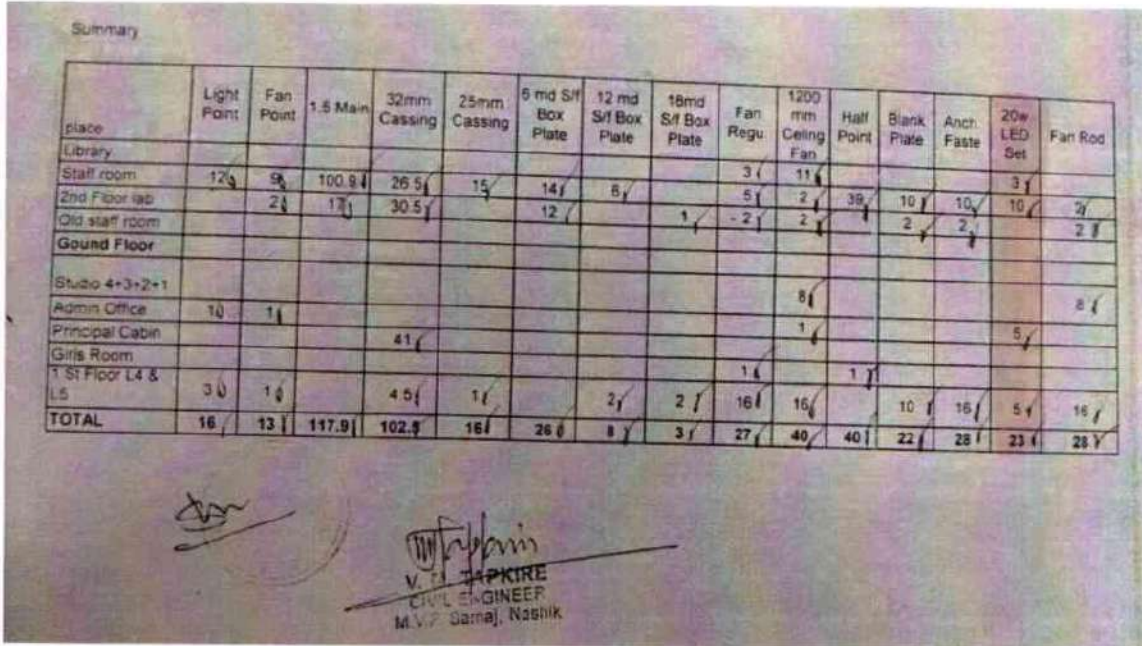 Summary
place Light Point Fan Point 1.5 Main 32mm Cassing 25mm Cassing 6 md S/f Box Plate 12 md S/f Box Plate 18md S/f Box Plate Fan Regu. 1200 mm Celing Fan Half Point Blank Plate Anch. Faste 20w LED Set Fan Rod
Library 3 11 3
Staff room 12 9 100.9 26.5 15 14 6 5 2 39 10 10 10 2
2nd Floor lab 2 17 30.5 12 1 - 2 2 2 2 2
Old staff room
Gound Floor
Studio 4+3+2+1 8 8
Admin Office 10 1 1 5
Principal Cabin 41
Girls Room 1 1
1 St Floor L4 & L5 3 1 4.5 1 2 2 16 16 10 16 5 16
TOTAL 16 13 117.9 102.5 16 26 8 3 27 40 40 22 28 23 28
TAPKIRE
CIVIL ENGINEER
M.V.P. Samaj, Nashik